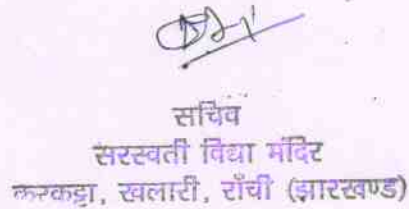 सचिव
सरस्वती विद्या मंदिर
करकट्टा, खलारी, राँची (झारखण्ड)